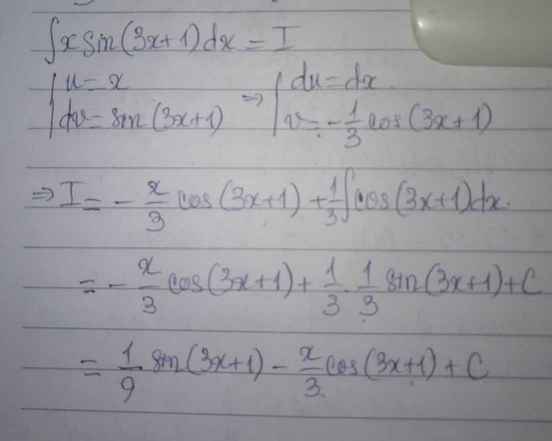 ∫x sin(3x+1)dx = I
{u = x ⇒ {du = dx.
{dv = sin(3x+1) {v = -1/3 cos(3x+1)
⇒ I = -x/3 cos(3x+1) + 1/3 ∫cos(3x+1)dx.
= -x/3 cos(3x+1) + 1/3 . 1/3 sin(3x+1) + C
= 1/9 sin(3x+1) - x/3 cos(3x+1) + C